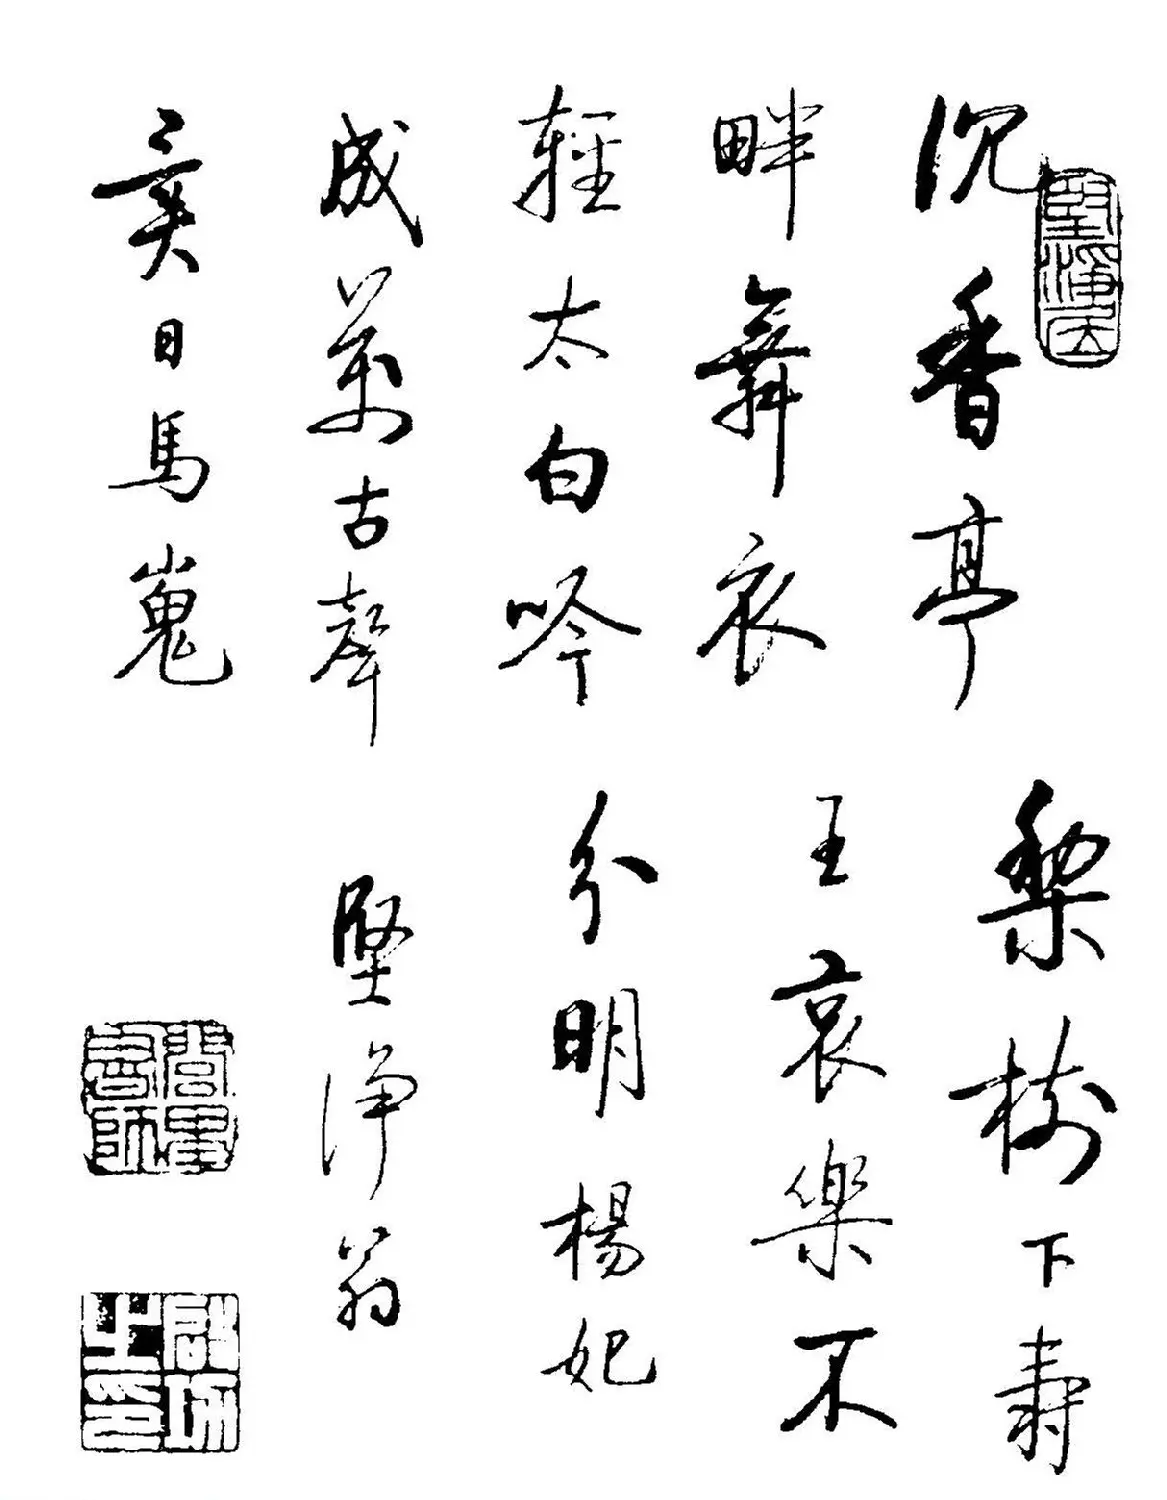 沉香亭
畔舞衣
輕太白吟
成萬古聲
異日馬嵬
梨樹下壽
王哀樂不
分明楊妃
堅淨翁
啟功之印